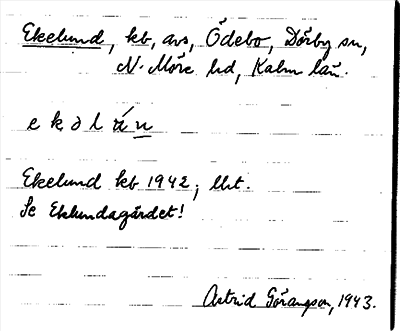 Ekelund, kb, avs, Ödebo, Dörby sn,
N. Möre hd, Kalm län.
e k ə l á n
Ekelund kb 1942; lht.
Se Eklundagärdet!
Astrid Göransson, 1943.